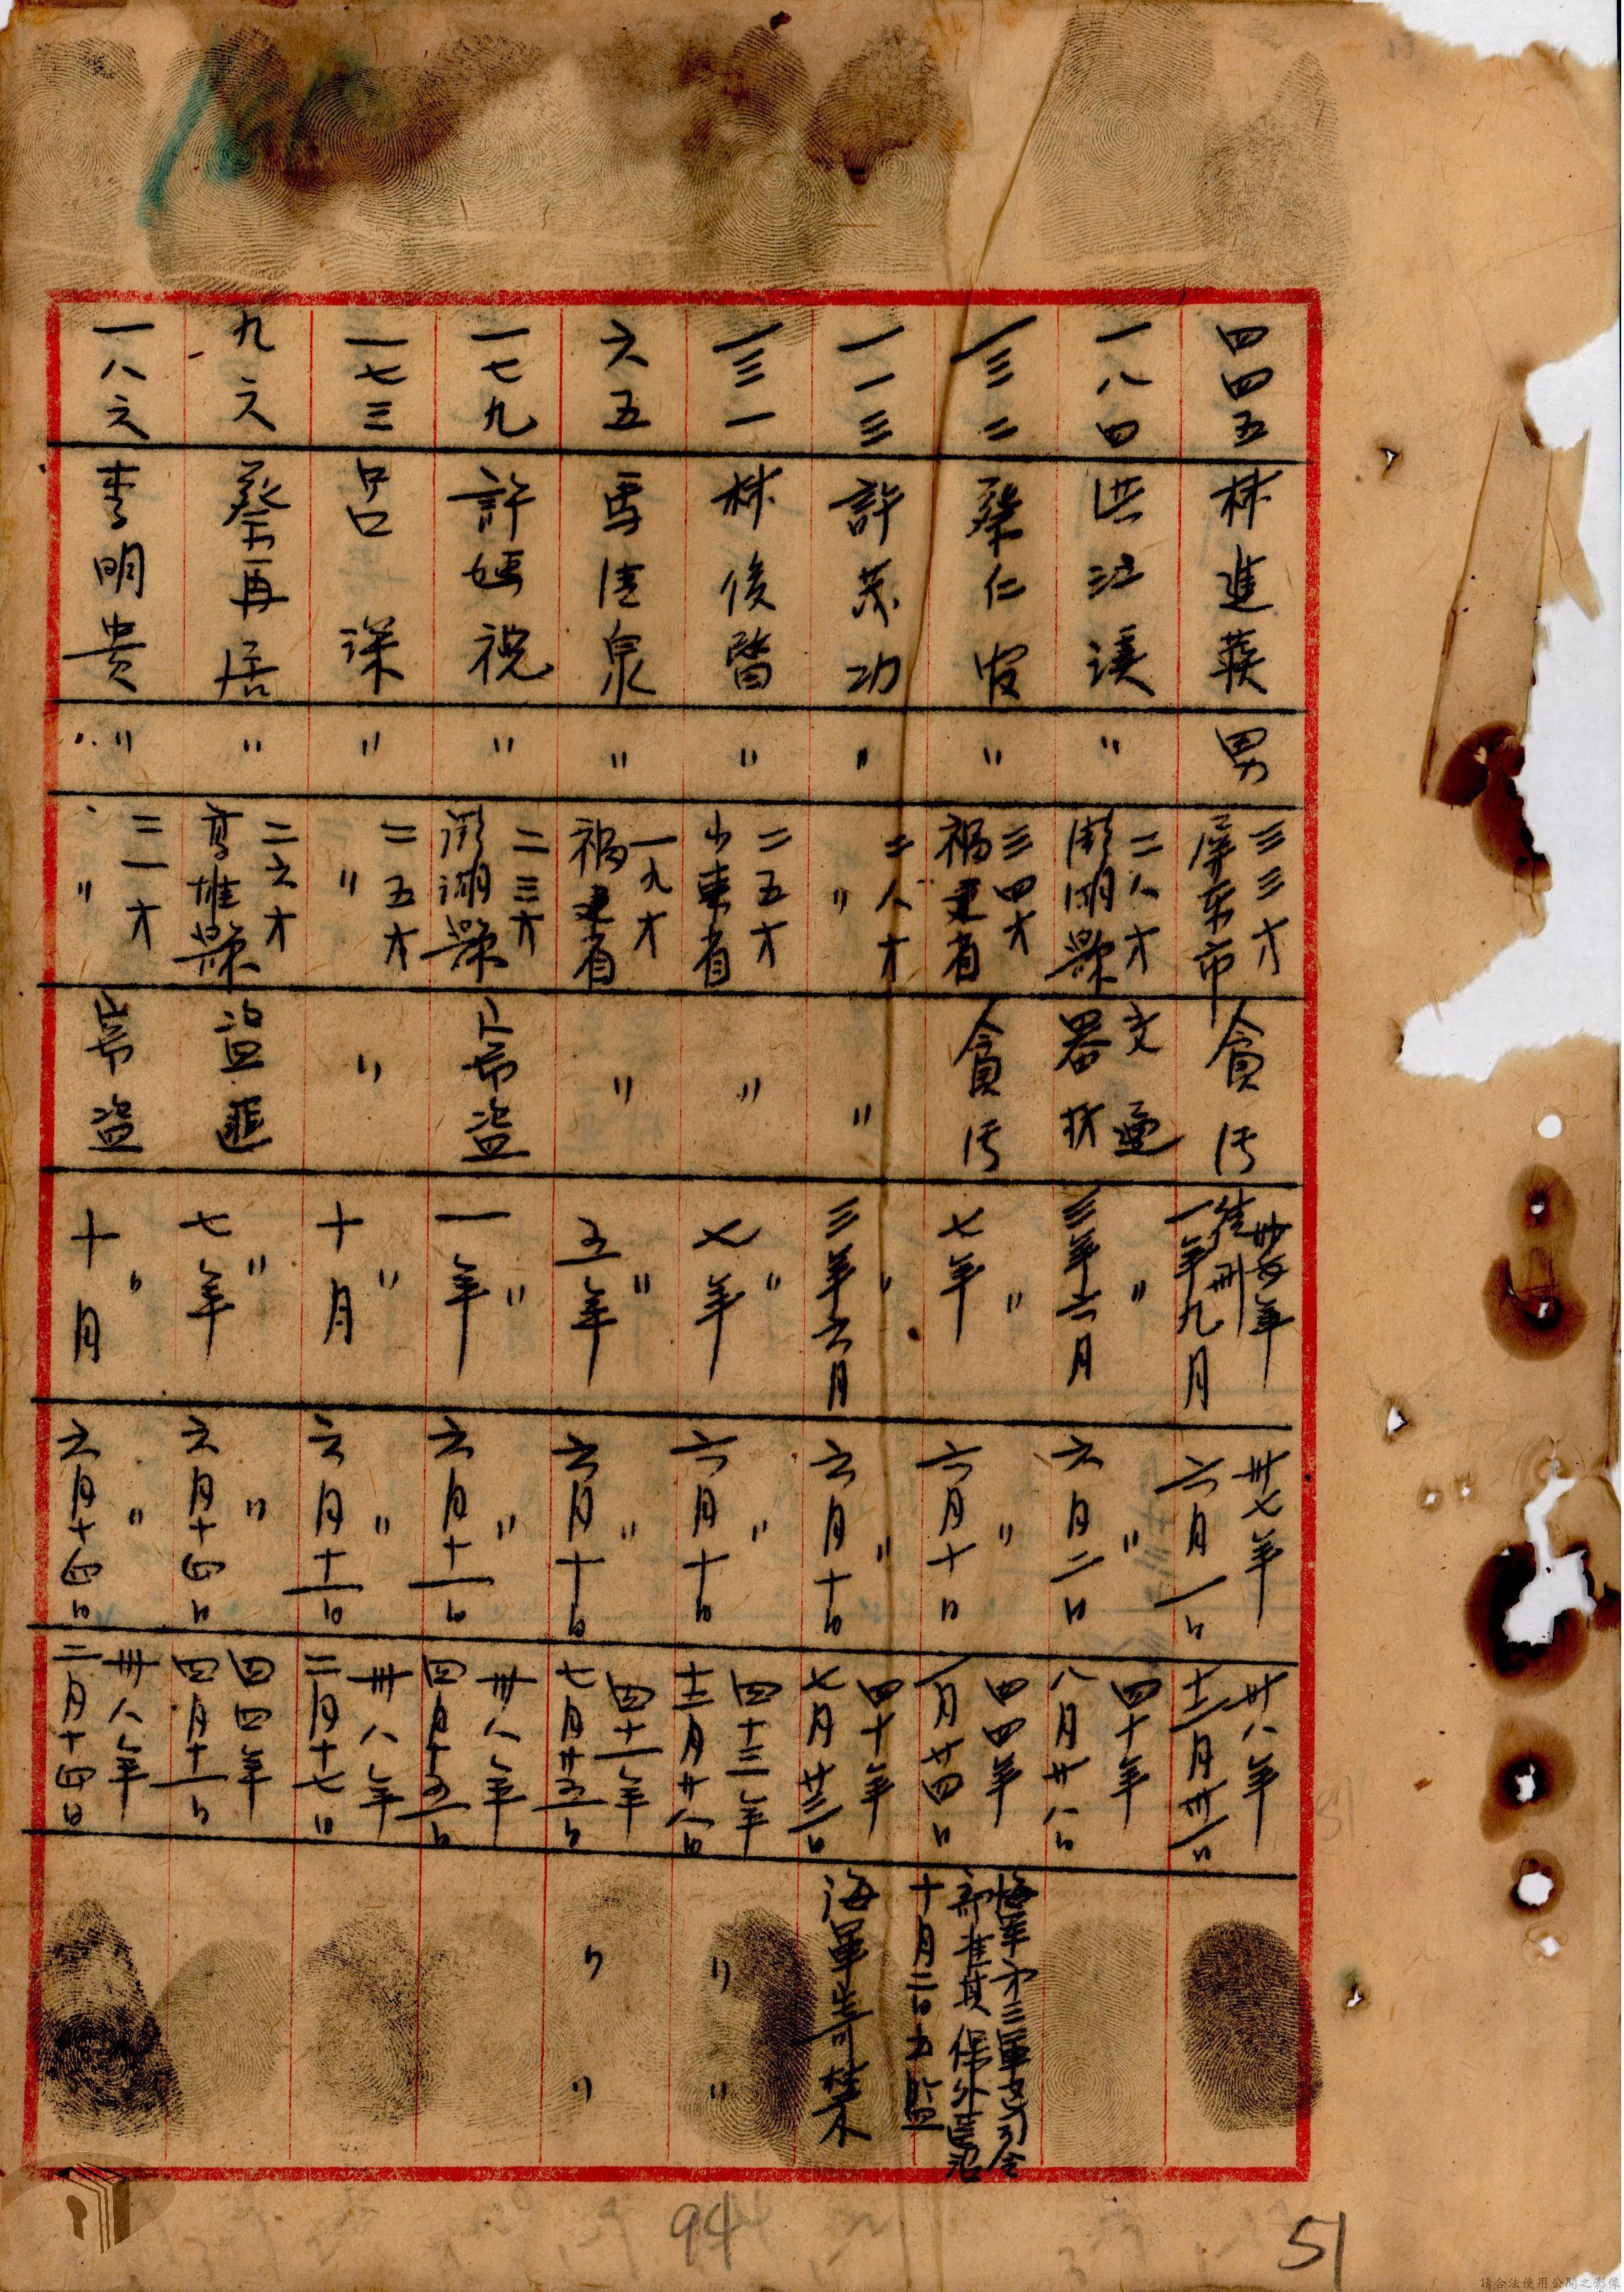 四四五
林進
男
三三才
屏東市
貪污
卅七年
徒刑
一年九月
卅七年
六月一日
卅八年
十二月卅一日
一八四
洪江
〃
二八才
澎湖縣
交通
器材
〃
三年六月
〃
六月二日
四十年
八月廿八日
一三二
蔡仁安
〃
三四才
福建省
貪污
〃
七年
〃
六月十日
四四年
一月廿四日
海軍第三軍區司令
部准其保外醫治
十月二日出監
一一三
許茂功
〃
二八才
〃
〃
〃
三年六月
〃
六月十日
四十年
七月廿三日
海軍寄禁
一三一
林俊
〃
二五才
山東省
〃
〃
七年
〃
六月十日
四十三年
十二月廿八日
〃 〃
六五
馬佳泉
〃
一九才
福建省
〃
〃
五年
〃
六月十日
四十一年
七月廿五日
〃 〃
一七九
許媽祝
〃
二三才
澎湖縣
竊盜
〃
一年
〃
六月十一日
卅八年
四月十五日
一七三
呂
〃
二五才
〃
〃
〃
十月
〃
六月十一日
卅八年
二月十七日
九六
蔡再居
〃
二六才
高雄縣
盜匪
〃
七年
〃
六月十四日
四四年
四月十一日
一八六
李明貴
〃
二一才
〃
竊盜
〃
十月
〃
六月十四日
卅八年
二月十四日
94
51
請合法使用公開之影像